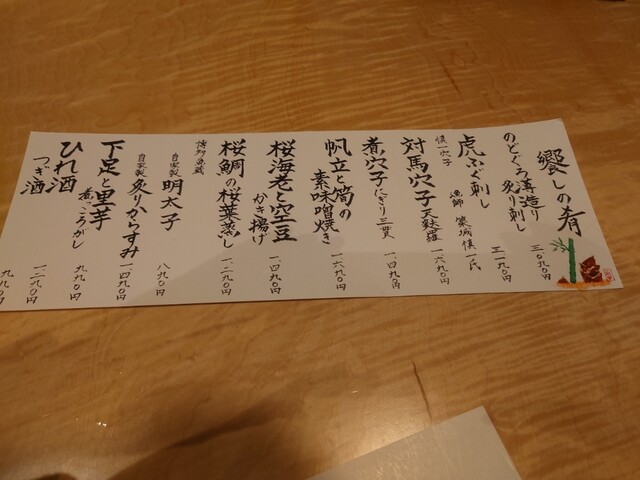 饗しの肴
のどぐろ薄造り
炙り刺し
三、〇九〇円
虎ふぐ刺し
二、一九〇円
漁師 築城慎一氏
慎一穴子
対馬穴子天麩羅
一、六九〇円
煮穴子にぎり三貫
一、四九〇円
帆立と筍の
素味噌焼き
一、六九〇円
桜海老と空豆
かき揚げ
一、四九〇円
桜鯛の桜葉蒸し
一、二九〇円
博多魚蔵
明太子
八九〇円
自家製
自家製
炙りからすみ
一、四九〇円
下足と里芋
煮ころがし
九九〇円
ひれ酒
一、二九〇円
つぎ酒
九九〇円